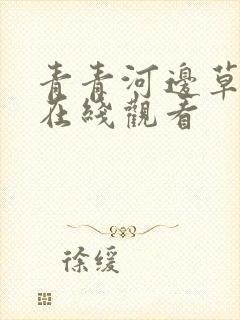 青青河邊草
在綫觀看
徐缓